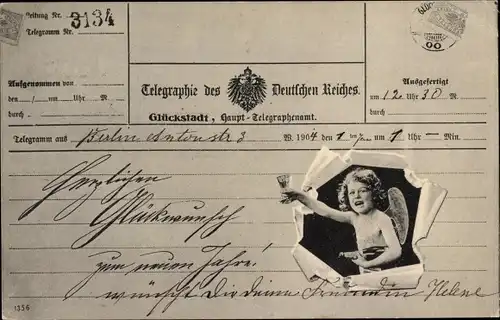 Leitung Nr. 3134
Telegramm Nr.
Aufgenommen von
den / um Uhr M.
durch
Telegraphie des Deutschen Reiches.
Glückstadt, Haupt-Telegraphenamt.
Ausgefertigt
um 12 Uhr 30 M.
durch
Telegramm aus Berlin Antonstr 3 W. 1904 den 1 ten um 1 Uhr – Min.
Herzlichen
Glückwunsch
zum neuen Jahre!
wünscht Dir deine Freundin Helene
1356